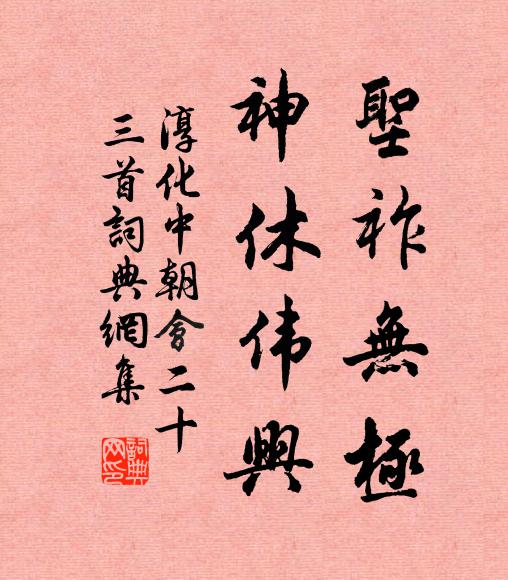 聖祚無極
神休伟興
淳化中朝會二十
三首詞典網集
詞典
网印